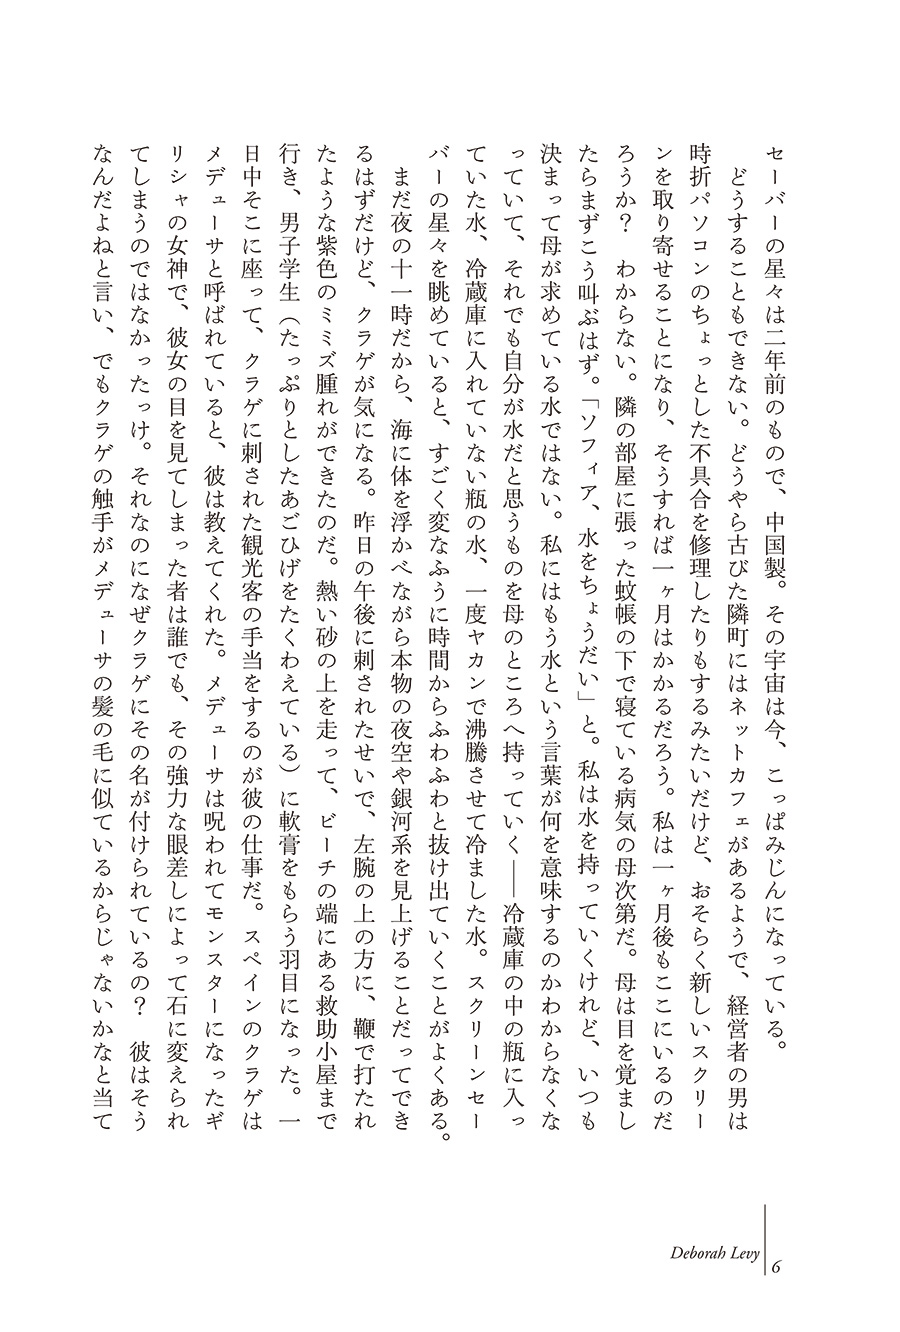 セーバーの星々は二年前のもので、中国製。その宇宙は今、こっぱみじんになっている。
　どうすることもできない。どうやら古びた隣町にはネットカフェがあるようで、経営者の男は
時折パソコンのちょっとした不具合を修理したりもするみたいだけど、おそらく新しいスクリー
ンを取り寄せることになり、そうすれば一ヶ月はかかるだろう。私は一ヶ月後もここにいるのだ
ろうか？　わからない。隣の部屋に張った蚊帳の下で寝ている病気の母次第だ。母は目を覚まし
たらまずこう叫ぶはず。「ソフィア、水をちょうだい」と。私は水を持っていくけれど、いつも
決まって母が求めている水ではない。私にはもう水という言葉が何を意味するのかわからなくな
っていて、それでも自分が水だと思うものを母のところへ持っていく――冷蔵庫の中の瓶に入っ
ていた水、冷蔵庫に入れていない瓶の水、一度ヤカンで沸騰させて冷ました水。スクリーンセー
バーの星々を眺めていると、すごく変なふうに時間からふわふわと抜け出ていくことがよくある。
　まだ夜の十一時だから、海に体を浮かべながら本物の夜空や銀河系を見上げることだってでき
るはずだけど、クラゲが気になる。昨日の午後に刺されたせいで、左腕の上の方に、鞭で打たれ
たような紫色のミミズ腫れができたのだ。熱い砂の上を走って、ビーチの端にある救助小屋まで
行き、男子学生（たっぷりとしたあごひげをたくわえている）に軟膏をもらう羽目になった。一
日中そこに座って、クラゲに刺された観光客の手当をするのが彼の仕事だ。スペインのクラゲは
メデューサと呼ばれていると、彼は教えてくれた。メデューサは呪われてモンスターになったギ
リシャの女神で、彼女の目を見てしまった者は誰でも、その強力な眼差しによって石に変えられ
てしまうのではなかったっけ。それなのになぜクラゲにその名が付けられているの？　彼はそう
なんだよねと言い、でもクラゲの触手がメデューサの髪の毛に似ているからじゃないかなと当て
Deborah Levy
6